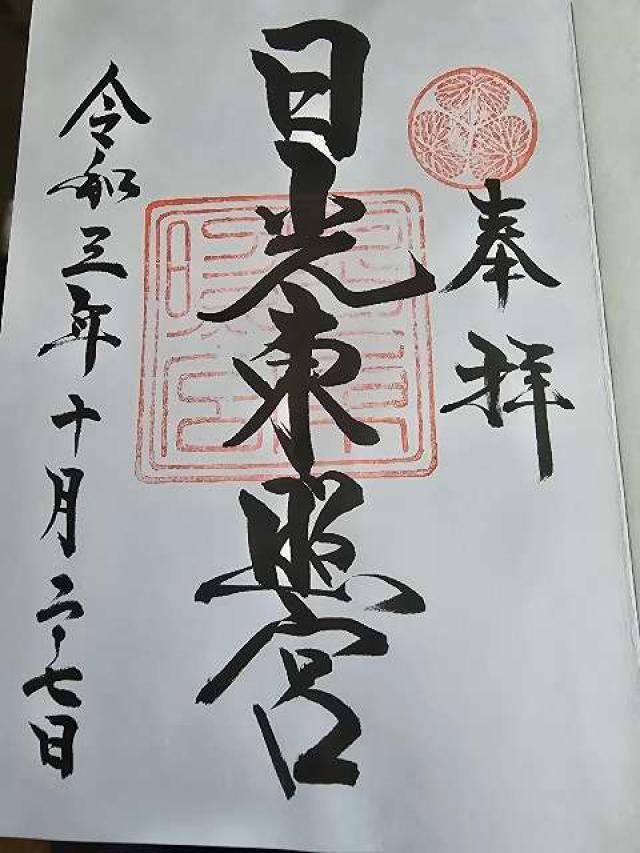 奉拝
日光東照宮
令和三年十月二十七日